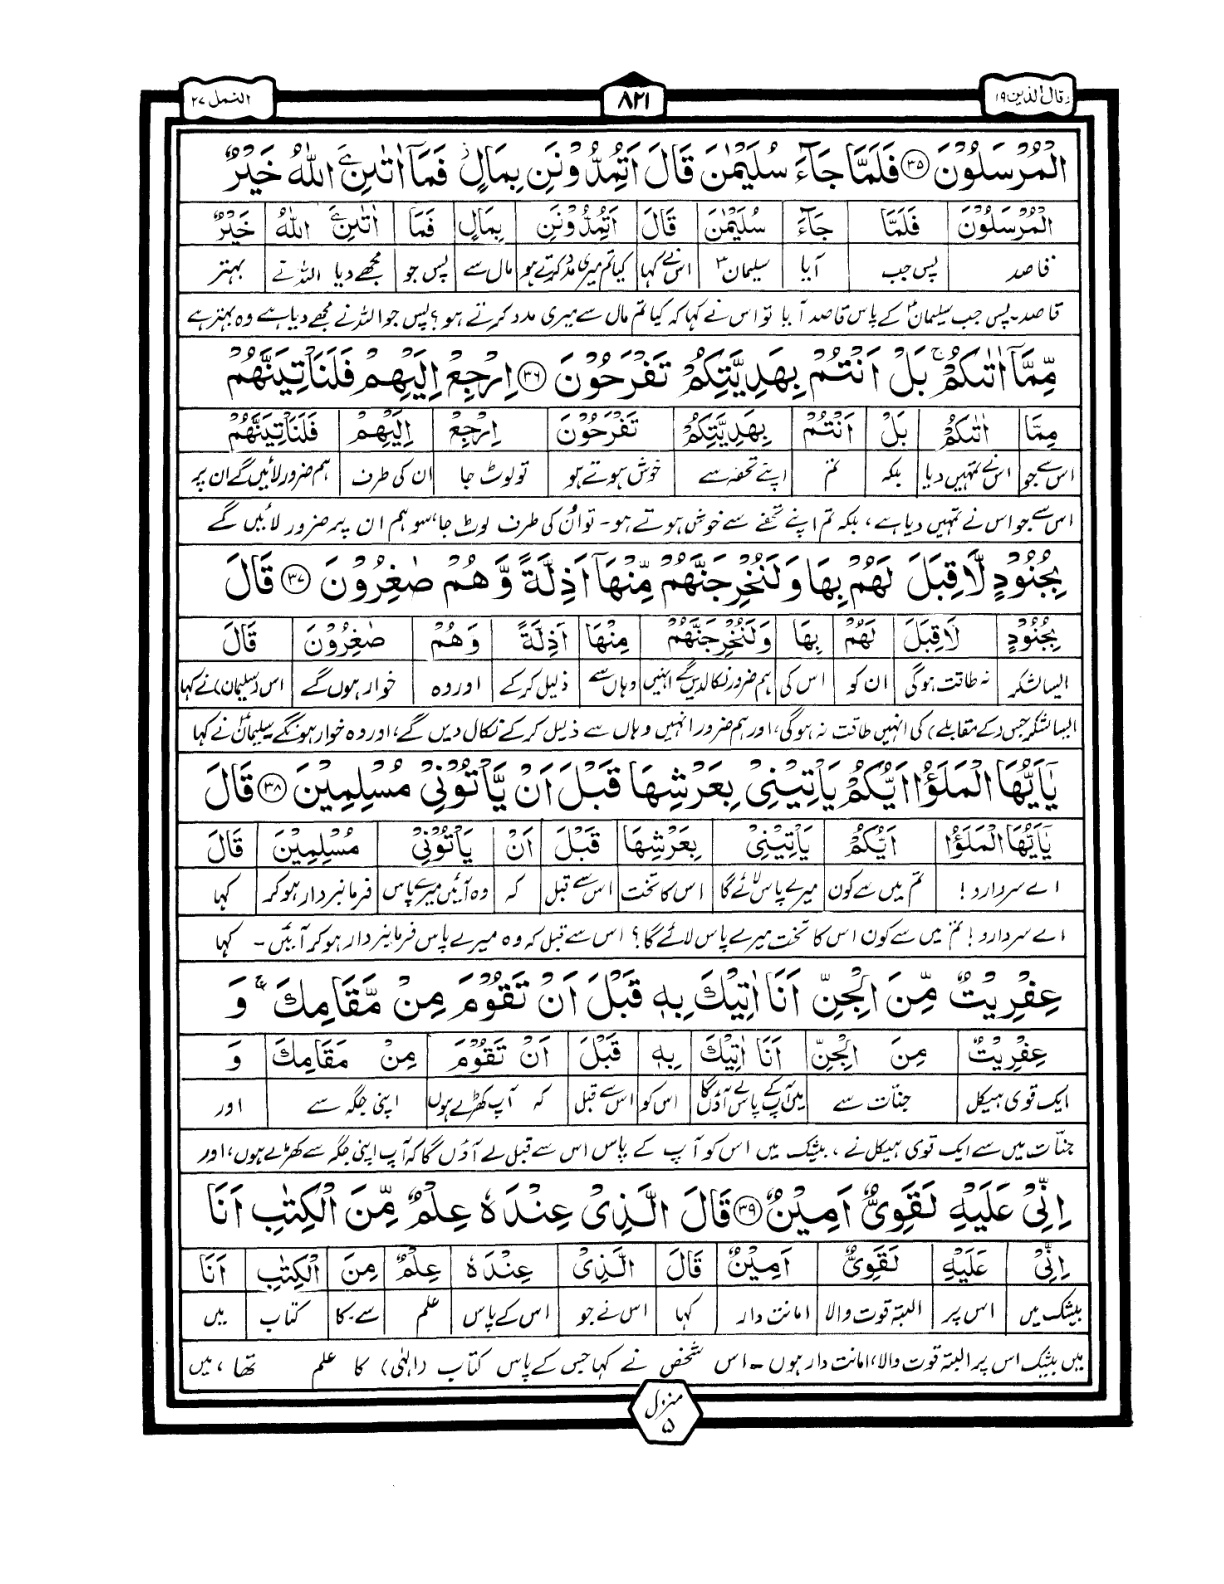 وقال الذین ۱۹
۸۲۱
النمل ۲۷
الْمُرْسَلُوْنَ ۳۵ فَلَمَّا جَآءَ سُلَیْمٰنَ قَالَ اَتُمِدُّوْنَنِ بِمَالٍ فَمَاۤ اٰتٰىنِۦَ اللّٰهُ خَیْرٌ
الْمُرْسَلُوْنَ فَلَمَّا جَآءَ سُلَیْمٰنَ قَالَ اَتُمِدُّوْنَنِ بِمَالٍ فَمَا اٰتٰىنِۦَ اللّٰهُ خَیْرٌ
قاصد پس جب آیا سلیمانؑ اس نے کہا کیا تم میری مدد کرتے ہو مال سے پس جو مجھے دیا اللہ نے بہتر
قاصد۔ پس جب سلیمانؑ کے پاس قاصد آیا تو اس نے کہا کہ کیا تم مال سے میری مدد کرتے ہو؟ پس جو اللہ نے مجھے دیا ہے وہ بہتر ہے
مِّمَّاۤ اٰتٰىكُمْ ۚ بَلْ اَنْتُمْ بِهَدِیَّتِكُمْ تَفْرَحُوْنَ ۳۶ اِرْجِعْ اِلَیْهِمْ فَلَنَاْتِیَنَّهُمْ
مِمَّا اٰتٰىكُمْ بَلْ اَنْتُمْ بِهَدِیَّتِكُمْ تَفْرَحُوْنَ اِرْجِعْ اِلَیْهِمْ فَلَنَاْتِیَنَّهُمْ
اس سے جو اس نے تمہیں دیا بلکہ تم اپنے تحفہ سے خوش ہوتے ہو تو لوٹ جا ان کی طرف ہم ضرور لائیں گے ان پر
اس سے جو اس نے تمہیں دیا ہے، بلکہ تم اپنے تحفے سے خوش ہوتے ہو۔ تو اُن کی طرف لوٹ جا، سو ہم ان پر ضرور لائیں گے
بِجُنُوْدٍ لَّا قِبَلَ لَهُمْ بِهَا وَلَنُخْرِجَنَّهُمْ مِّنْهَاۤ اَذِلَّةً وَّهُمْ صٰغِرُوْنَ ۳۷ قَالَ
بِجُنُوْدٍ لَا قِبَلَ لَهُمْ بِهَا وَلَنُخْرِجَنَّهُمْ مِنْهَا اَذِلَّةً وَهُمْ صٰغِرُوْنَ قَالَ
ایسا لشکر نہ طاقت ہوگی ان کو اس کی ہم ضرور نکالدیں گے انہیں وہاں سے ذلیل کر کے اور وہ خوار ہوں گے اس (سلیمان) نے کہا
ایسا لشکر جس (کے مقابلے) کی انہیں طاقت نہ ہوگی، اور ہم ضرور انہیں وہاں سے ذلیل کر کے نکال دیں گے، اور وہ خوار ہونگے سلیمانؑ نے کہا
یٰۤاَیُّهَا الْمَلَؤُا اَیُّكُمْ یَاْتِیْنِیْ بِعَرْشِهَا قَبْلَ اَنْ یَّاْتُوْنِیْ مُسْلِمِیْنَ ۳۸ قَالَ
یٰۤاَیُّهَا الْمَلَؤُا اَیُّكُمْ یَاْتِیْنِیْ بِعَرْشِهَا قَبْلَ اَنْ یَاْتُوْنِیْ مُسْلِمِیْنَ قَالَ
اے سردارو! تم میں سے کون میرے پاس لائے گا اس کا تخت اس سے قبل کہ وہ آئیں میرے پاس فرمانبردار ہو کر کہا
اے سردارو! تم میں سے کون اس کا تخت میرے پاس لائے گا؟ اس سے قبل کہ وہ میرے پاس فرمانبردار ہو کر آئیں۔ کہا
عِفْرِیْتٌ مِّنَ الْجِنِّ اَنَا اٰتِیْكَ بِهٖ قَبْلَ اَنْ تَقُوْمَ مِنْ مَّقَامِكَ ۚ وَ
عِفْرِیْتٌ مِنَ الْجِنِّ اَنَا اٰتِیْكَ بِهٖ قَبْلَ اَنْ تَقُوْمَ مِنْ مَقَامِكَ وَ
ایک قوی ہیکل جنّات سے میں آپ کے پاس لے آؤں گا اس کو اس سے قبل کہ آپ کھڑے ہوں اپنی جگہ سے اور
جنّات میں سے ایک قوی ہیکل نے، بیشک میں اس کو آپ کے پاس اس سے قبل لے آؤں گا کہ آپ اپنی جگہ سے کھڑے ہوں، اور
اِنِّیْ عَلَیْهِ لَقَوِیٌّ اَمِیْنٌ ۳۹ قَالَ الَّذِیْ عِنْدَهٗ عِلْمٌ مِّنَ الْكِتٰبِ اَنَا
اِنِّیْ عَلَیْهِ لَقَوِیٌّ اَمِیْنٌ قَالَ الَّذِیْ عِنْدَهٗ عِلْمٌ مِنَ الْكِتٰبِ اَنَا
بیشک میں اس پر البتہ قوت والا امانت دار کہا اس نے جو اس کے پاس علم سے۔کا کتاب میں
میں بیشک اس پر البتہ قوت والا، امانت دار ہوں۔ اس شخص نے کہا جس کے پاس کتاب (الٰہی) کا علم تھا، میں
منزل ۵